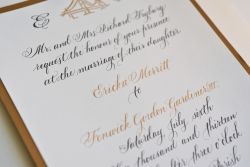 E
Mr. and Mrs. Richard
request the honour of your presence
at the marriage of their daughter
Ericka Merritt
to
Fenwick Gordon Gardiner III
Saturday July sixth
thousand and thirteen
three o'clock